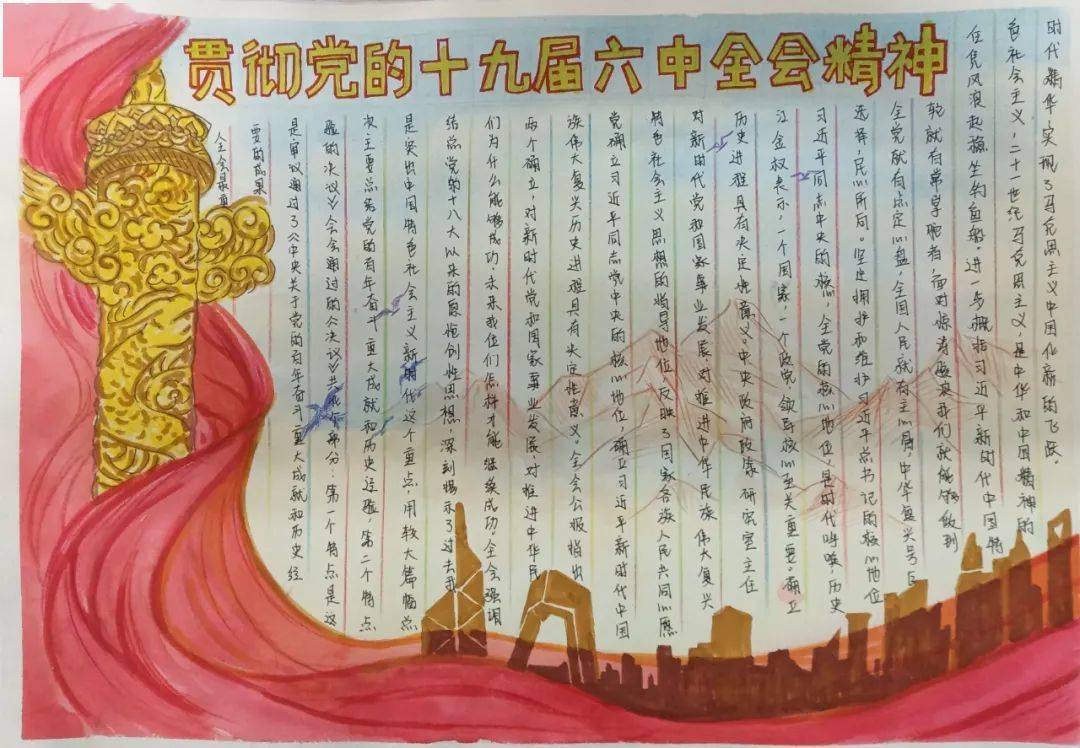 贯彻党的十九届六中全会精神
全会最重
要的成果
是审议通过了《中央关于党的百年奋斗重大成就和历史经
验的决议》全会通过的《决议》共个部分:第一个特点是这
次主要总结党的百年奋斗重大成就和历史经验,第二个特点
是突出中国特色社会主义新时代这个重点,用较大篇幅总
结党的十八大以来的原创性思想,深刻揭示了过去我
们为什么能够成功、未来我们怎样才能继续成功。全会强调
两个确立,对新时代党和国家事业发展、对推进中华民
族伟大复兴历史进程具有决定性意义。全会公报指出
党确立习近平同志党中央的核心地位,确立习近平新时代中国
特色社会主义思想的指导地位,反映了国家各族人民共同心愿
对新时代党和国家事业发展、对推进中华民族伟大复兴
历史进程具有决定性意义。中央政府政策研究室主任
江金权表示,一个国家,一个政党,领导核心至关重要。确立
习近平同志中央的核心、全党的核心地位,是时代呼唤,历史
选择,民心所向。坚定拥护和维护习近平总书记的核心地位
全党就有点定心盘,全国人民就有主心骨,中华复兴号巨
轮就有常掌舵者,面对惊涛骇浪我们就能够做到
任凭风浪起稳坐钓鱼船。进一步概括习近平新时代中国特
色社会主义,二十一世纪马克思主义,是中华和中国精神的
时代精华,实现了马克思主义中国化新的飞跃。